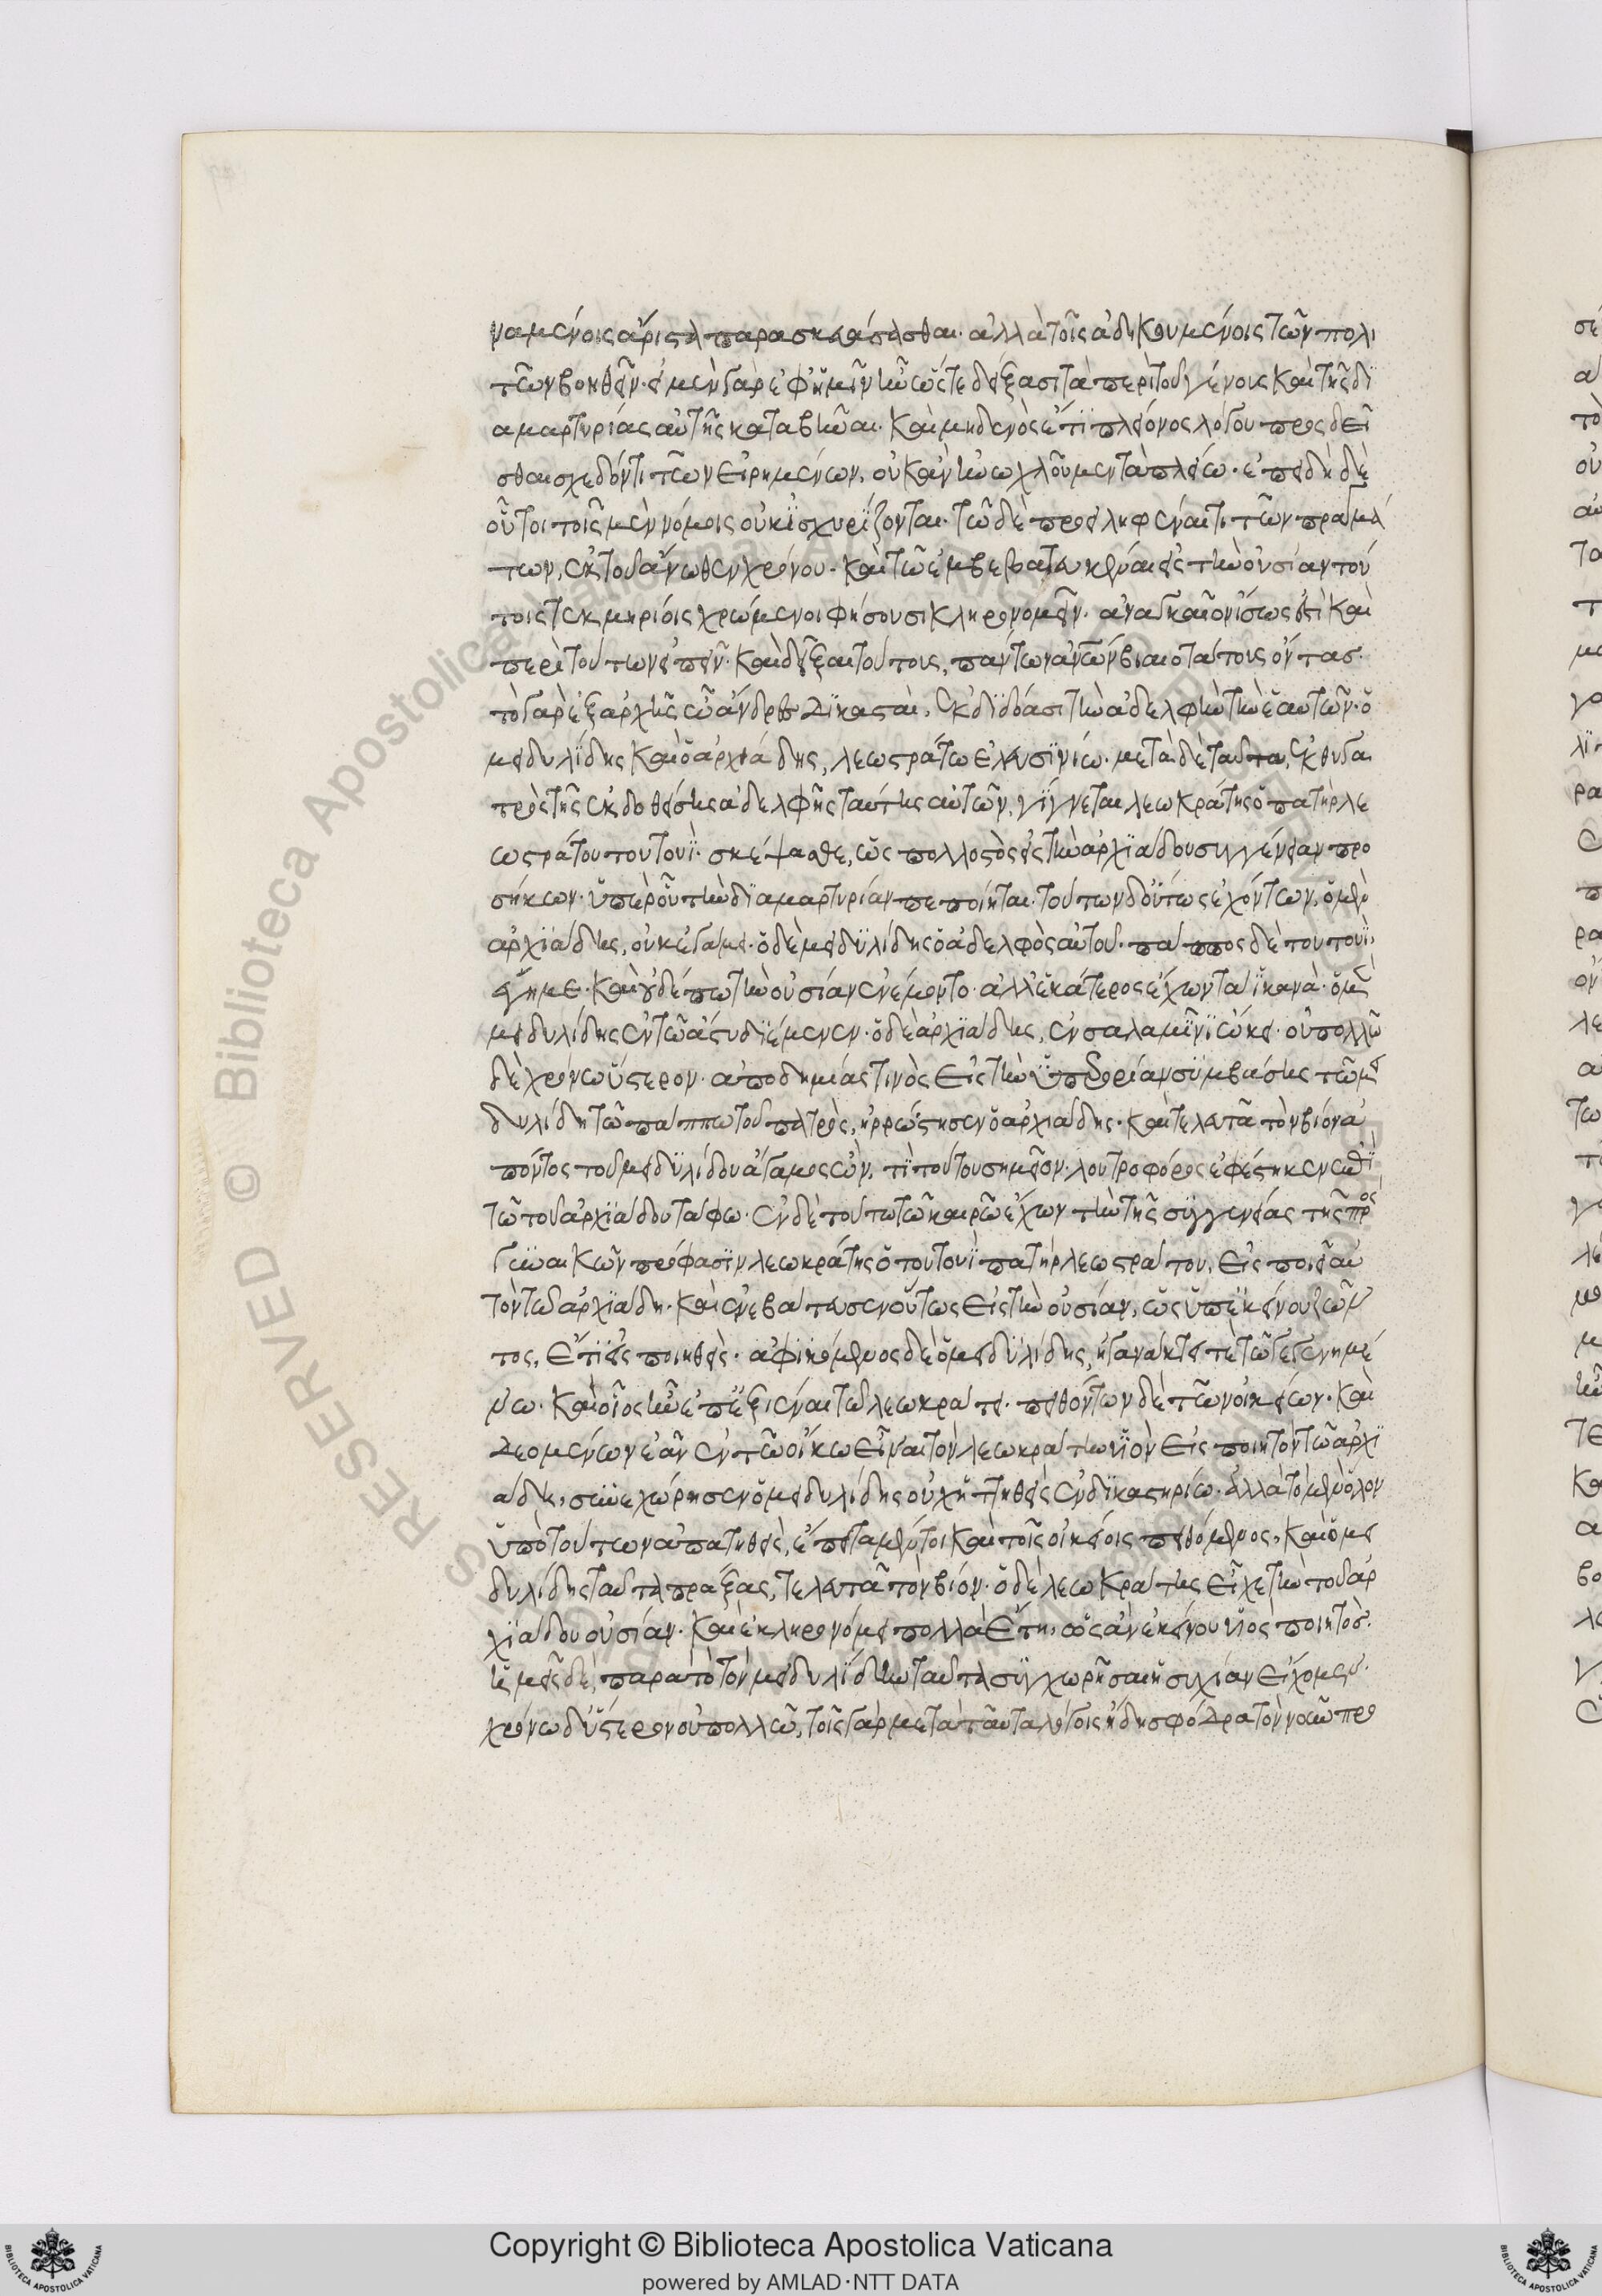 ναμένοις ἄριστα παρασκευάσασθαι· ἀλλὰ τοῖς ἀδικουμένοις τῶν πολι
τῶν βοηθεῖν· ἐμὲν γὰρ ἐφ' ἡμῖν ἦν ὥστε δείξασι τὰ περὶ τοῦ γένους καὶ τῆς δι
αμαρτυρίας αὐτῆς καταβῆναι· καὶ μηδενὸς ἔτι πλείονος λόγου προσδεῖ
σθαι σχεδόν τι τῶν εἰρημένων, οὐκ ἂν ἠνωχλοῦμεν τὰ πλείω· ἐπειδὴ δὲ
οὗτοι τοῖς μὲν νόμοις οὐκ ἰσχυρίζονται· τῷ δὲ προειληφέναι τι τῶν πραγμά
των, ἐκ τοῦ ἄνωθεν χρόνου· καὶ τῷ ἐμβεβατευκέναι εἰς τὴν οὐσίαν τού
τοις τεκμηρίοις χρώμενοι φήσουσι κληρονομεῖν· ἀναγκαῖον ἴσως ἐστὶ καὶ
περὶ τούτων εἰπεῖν· καὶ δεῖξαι τούτους, πάντων ἀνθρώπων βιαιοτάτους ὄντας·
τὸ γὰρ ἐξ ἀρχῆς ὦ ἄνδρες δικασταὶ, ἐκδιδόασι τὴν ἀδελφὴν τὴν ἑαυτῶν· ὁ
μειδυλίδης καὶ ὁ ἀρχιάδης, λεωστράτω ἐλευσινίω· μετὰ δὲ ταῦτα, ἐκ θυγα
τρὸς τῆς ἐκδοθείσης ἀδελφῆς ταύτης αὐτῶν, γίγνεται λεωκράτης ὁ πατὴρ λε
ωστράτου τουτουί· σκέψασθε, ὡς πολλοστὸς εἰς τὴν ἀρχιάδου συγγένειαν προ
σήκων· ὑπὲρ οὗ τὴν διαμαρτυρίαν πεποίηται· τούτων δ' οὕτως ἐχόντων, ὁ μὲν
ἀρχιάδης, οὐκ ἐγάμει· ὁ δὲ μειδυλίδης ὁ ἀδελφὸς αὐτοῦ· πάππος δὲ τουτουί,
ἔγημε· καὶ οὐδέπω τὴν οὐσίαν ἐνέμοντο· ἀλλ' ἑκάτερος ἔχων τὰ ἱκανὰ· ὁ μὲν
μειδυλίδης ἐν τῷ ἄστυ διέμενεν· ὁ δὲ ἀρχιάδης, ἐν σαλαμῖνι ᾤκει· οὐ πολλῷ
δὲ χρόνω ὕστερον· ἀποδημίας τινὸς εἰς τὴν ὑπερορίαν συμβάσης τῷ μει
δυλίδη τῷ πάππω τοῦ πατρὸς, ἠρρώστησεν ὁ ἀρχιάδης· καὶ τελευτᾶ τὸν βίον ἀ
πόντος τοῦ μειδυλίδου ἄγαμος ὤν, τί τούτου σημεῖον· λουτροφόρος ἐφέστηκεν ἐπὶ
τῷ τοῦ ἀρχιάδου τάφω· ἐν δὲ τούτω τῷ καιρῷ ἔχων τὴν τῆς συγγενείας τῆς πρὸς
γυναικῶν πρόφασιν λεωκράτης ὁ τουτουὶ πατὴρ λεωστράτου, εἰς ποιεῖ αὑ
τὸν τῶ ἀρχιάδη· καὶ ἐνεβάτευσεν οὕτως εἰς τὴν οὐσίαν, ὡς ὑπ' ἐκείνου ζῶν
τος, ἔτι εἰς ποιηθεὶς· ἀφικόμενος δὲ ὁ μειδυλίδης, ἠγανάκτει τε τῷ γεγενημέ
νω· καὶ οἷος ἦν ἐπεξιέναι τῶ λεωκράτει· πειθόντων δὲ τῶν οἰκείων· καὶ
δεομένων ἐᾶν ἐν τῷ οἴκω εἶναι τὸν λεωκράτην υἱὸν εἰς ποιητὸν τῷ ἀρχι
άδη, συνεχώρησεν ὁ μειδυλίδης οὐχ ἡττηθεὶς ἐν δικαστηρίω· ἀλλὰ τὸ μὲν ὅλον
ὑπὸ τούτων ἀπατηθεὶς, ἔπειτα μέντοι καὶ τοῖς οἰκείοις πειθόμενος, καὶ ὁ μει
δυλίδης ταῦτα πράξας, τελευτᾶ τὸν βίον· ὁ δὲ λεωκράτης εἶχε τὴν τοῦ ἀρ
χιάδου οὐσίαν· καὶ ἐκληρονόμει πολλὰ ἔτη, ὡς ἂν ἐκείνου υἱὸς ποιητὸς·
ἡμεῖς δὲ, παρὰ τὸ τὸν μειδυλίδην ταῦτα συγχωρῆσαι ἡσυχίαν εἴχομεν·
χρόνω δ' ὕστερον οὐ πολλῷ, τοῖς γὰρ μετὰ ταῦτα λόγοις ἤδη σφόδρα τὸν νοῦν προ